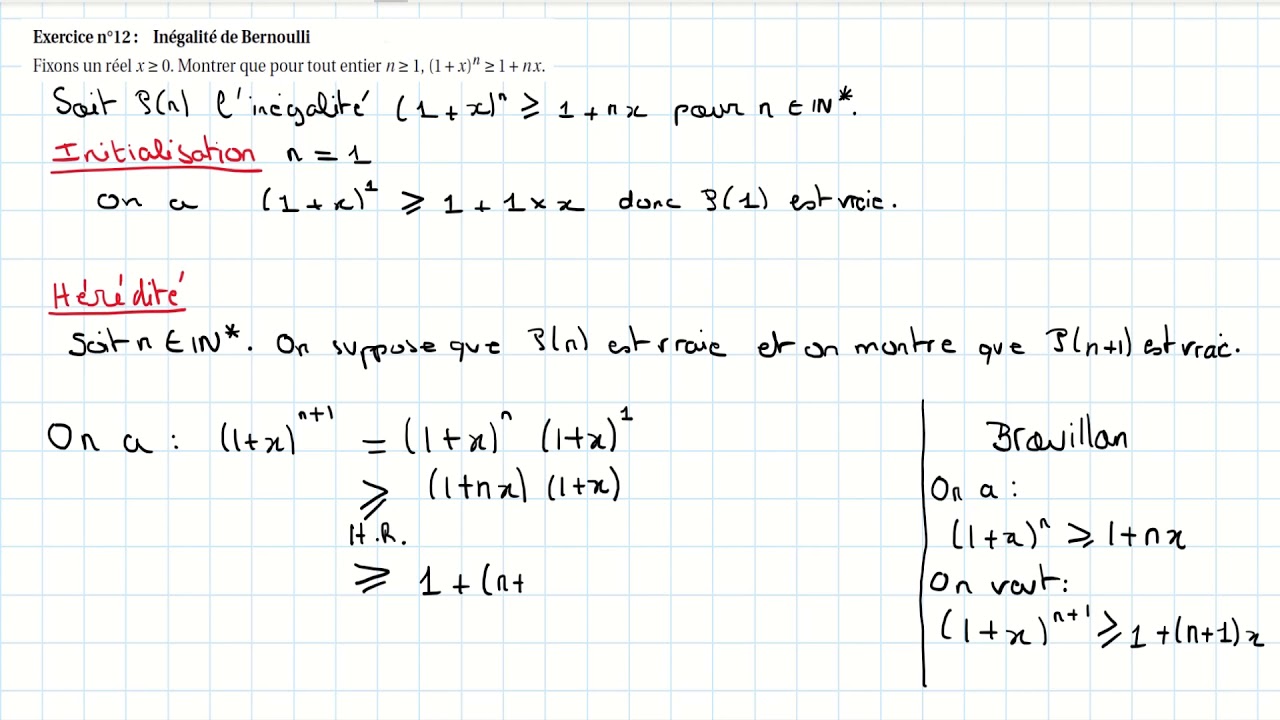 Exercice n°12 : Inégalité de Bernoulli
Fixons un réel x ≥ 0. Montrer que pour tout entier n ≥ 1, (1 + x)ⁿ ≥ 1 + nx.
Soit P(n) l'inégalité (1 + x)ⁿ ⩾ 1 + nx pour n ∈ IN*.
Initialisation n = 1
On a (1 + x)¹ ⩾ 1 + 1 × x donc P(1) est vraie.
Hérédité
Soit n ∈ IN*. On suppose que P(n) est vraie et on montre que P(n+1) est vraie.
On a : (1+x)ⁿ⁺¹ = (1+x)ⁿ (1+x)¹
⩾ (1+nx) (1+x)
H.R.
⩾ 1 + (n+
Brouillon
On a :
(1+x)ⁿ ⩾ 1+nx
On veut :
(1+x)ⁿ⁺¹ ⩾ 1 + (n+1)x